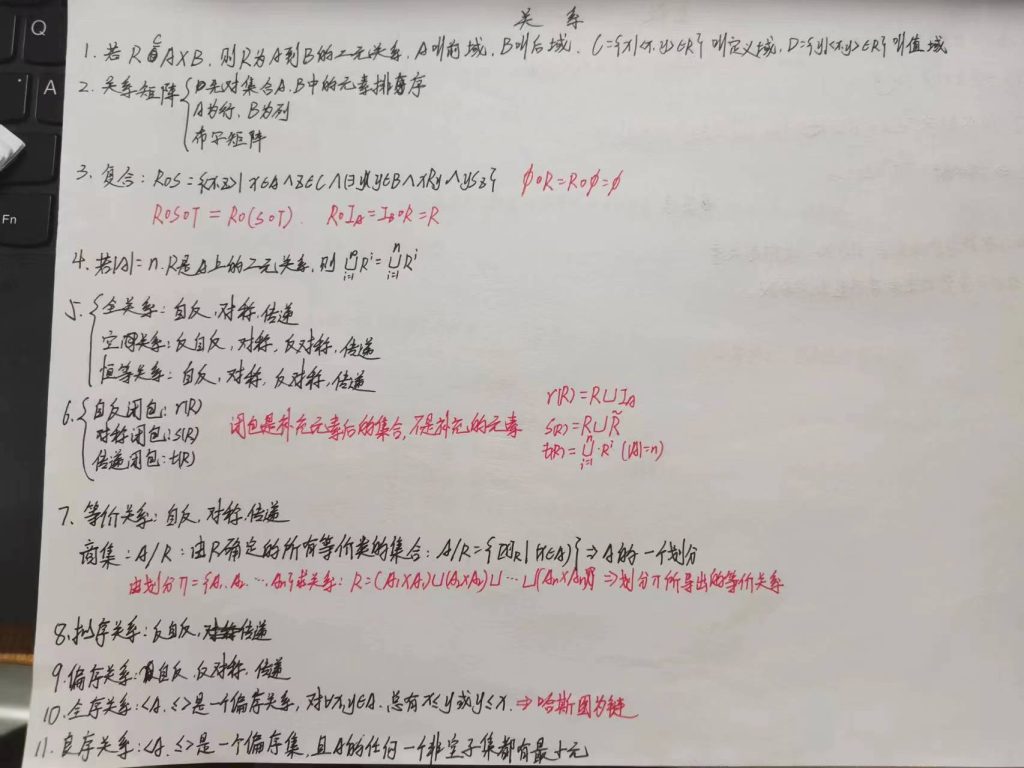 关系
1. 若R⊆A×B,则R为A到B的二元关系,A叫前域,B叫后域,C={x|<x,y>∈R}叫定义域,D={y|<x,y>∈R}叫值域
2. 关系矩阵{ ①先对集合A、B中的元素排序
A为行,B为列
布尔矩阵
3. 复合:R∘S={<x,z>|x∈A∧z∈C∧(∃y)(y∈B∧xRy∧ySz} ϕ∘R=R∘ϕ=ϕ
R∘S∘T=R∘(S∘T). R∘I_A=I_B∘R=R
4. 若|A|=n,R是A上的二元关系,则
5. { 全关系:自反,对称,传递
空关系:反自反,对称,反对称,传递
恒等关系:自反,对称,反对称,传递
6. { 自反闭包:r(R) r(R)=R∪I_A
对称闭包:s(R) 闭包是补充元素后的集合,不是补充的元素 s(R)=R∪R̃
传递闭包:t(R) t(R)=⋃_{i=1}^{n} R^i (|A|=n)
7. 等价关系:自反,对称,传递
商集:A/R:由R确定的所有等价类的集合:A/R={[x]_R|(x∈A)}⇒A的一个划分
由划分π={A₁,A₂,…A_n}求关系:R=(A₁×A₁)∪(A₂×A₂)∪…∪(A_n×A_n)⇒划分π所导出的等价关系
8. 拟序关系:反自反,传递
9. 偏序关系:自反,反对称,传递
10. 全序关系:<A,≤>是一个偏序关系,对∀x,y∈A,总有x≤y或y≤x.⇒哈斯图为链
11. 良序关系:<A,≤>是一个偏序集,且A的任何一个非空子集都有最小元
Q
A
Fn